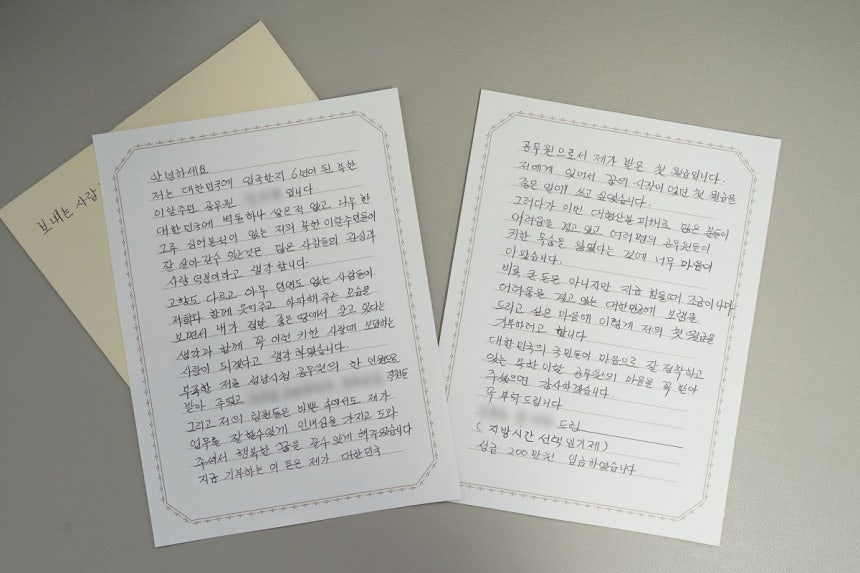 보내는 사람
안녕하세요
저는 대한민국에 입국한지 6년이 된 북한
이탈주민 공무원 입니다
대한민국에 벽돌하나 쌓은적 없고 나무 한
그루 심어본적이 없는 저희 북한 이탈주민들이
잘 살아 갈수 있는것은 많은 사람들의 관심과
사랑 덕분이라고 생각 합니다.
고향도 다르고 아무 인연도 없는 사람들이
저희와 함께 웃어주고 아파해 주는 모습을
보면서 내가 정말 좋은 땅에서 살고 있다는
생각과 함께 꼭 이런 귀한 사랑에 보답하는
사람이 되겠다고 생각 하였습니다.
부족한 저를 성남시청 공무원의 한 인원으로
받아 주었고 직원들
그리고 저의 팀원들은 바쁜 속에서도 제가
업무를 잘 할수있게 인내심을 가지고 도와
주셔서 행복한 꿈을 꿀수 있게 해주었습니다
지금 기부하는 이 돈은 제가 대한민국
공무원으로서 제가 받은 첫 월급입니다.
저에게 있어서 꿈의 시작이 였던 첫 월급을
좋은 일에 쓰고 싶었습니다.
그러다가 이번 대형산불 피해로 많은 분들이
어려움을 겪고 있고 여러명의 공무원들이
귀한 목숨을 잃었다는 것에 너무 마음이
아팠습니다.
비록 큰 돈은 아니지만 지금 힘들때 조금이나마
어려움을 겪고 있는 대한민국에 보탬을
드리고 싶은 마음에 이렇게 저의 첫 월급을
기부하려고 합니다
대한민국의 국민들의 마음으로 잘 정착하고
있는 북한 이탈 공무원의 마음을 꼭 받아
주셨으면 감사하겠습니다
꼭 부탁드립니다
드림
( 지방시간 선택 임기제 )
성금 200만원 입금하였습니다